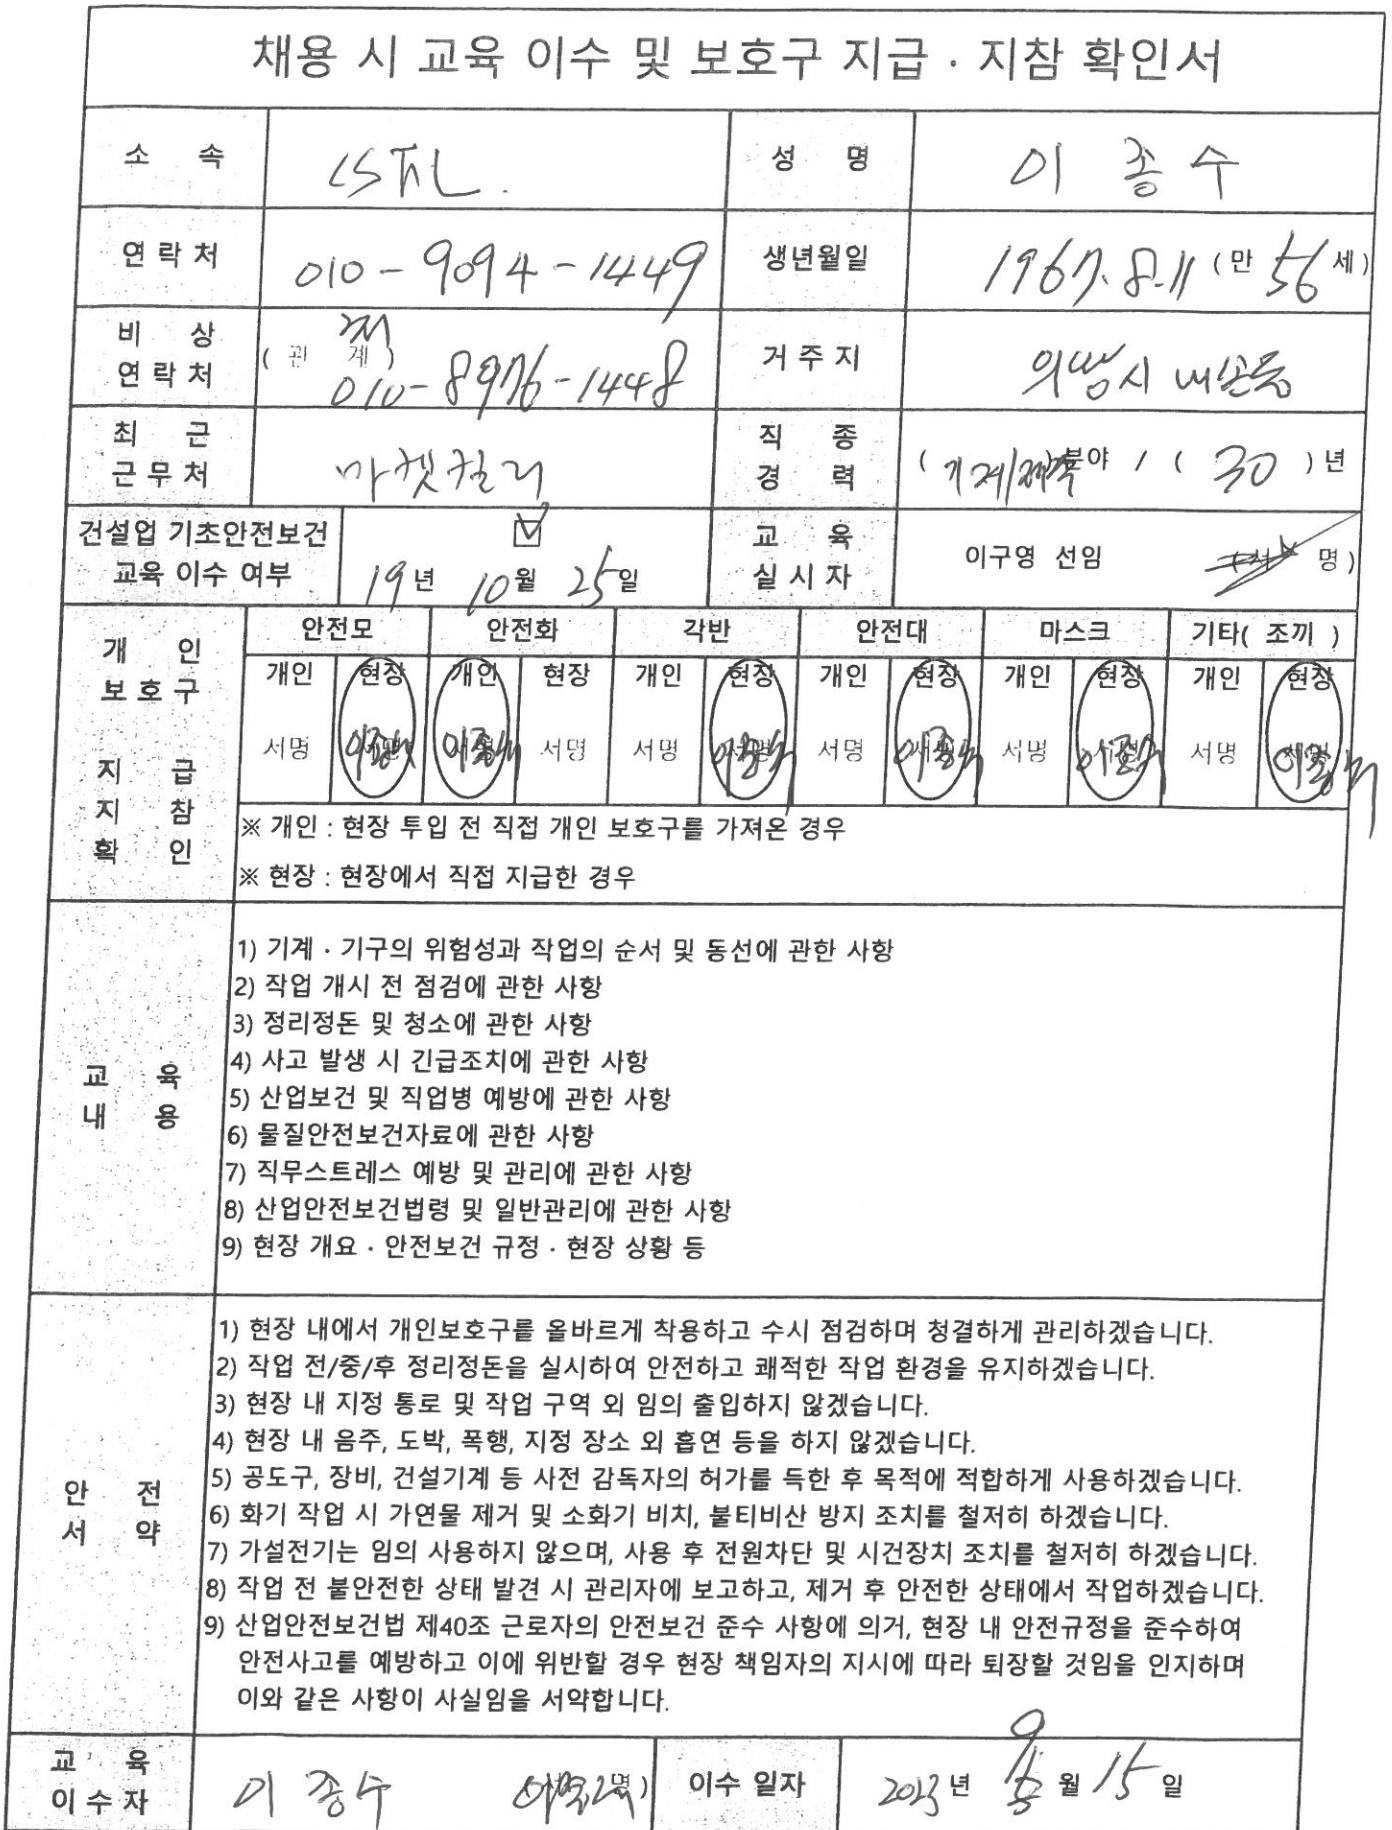 채용 시 교육 이수 및 보호구 지급 · 지참 확인서
소 속
성 명 이종수
연락처 010-9094-1449 생년월일 1967.8.11 (만 56 세)
비 상 연락처 (관 계) 010-8976-1448 거주지 의왕시 내손동
최 근 근무처 마켓컬리 직 종 경 력 (기계/제작) 분야 / ( 30 ) 년
건설업 기초안전보건 교육 이수 여부 ☑ 19년 10월 25일 교 육 실 시 자 이구영 선임 명)
개 인 보호구 지 급 지 참 확 인
안전모 안전화 각반 안전대 마스크 기타( 조끼 )
개인 현장 개인 현장 개인 현장 개인 현장 개인 현장 개인 현장
서명 이종수 이종수 서명 서명 이종수 서명 이종수 서명 이종수 서명 이종수
※ 개인 : 현장 투입 전 직접 개인 보호구를 가져온 경우
※ 현장 : 현장에서 직접 지급한 경우
교 육 내 용
1) 기계 · 기구의 위험성과 작업의 순서 및 동선에 관한 사항
2) 작업 개시 전 점검에 관한 사항
3) 정리정돈 및 청소에 관한 사항
4) 사고 발생 시 긴급조치에 관한 사항
5) 산업보건 및 직업병 예방에 관한 사항
6) 물질안전보건자료에 관한 사항
7) 직무스트레스 예방 및 관리에 관한 사항
8) 산업안전보건법령 및 일반관리에 관한 사항
9) 현장 개요 · 안전보건 규정 · 현장 상황 등
안 전 서 약
1) 현장 내에서 개인보호구를 올바르게 착용하고 수시 점검하며 청결하게 관리하겠습니다.
2) 작업 전/중/후 정리정돈을 실시하여 안전하고 쾌적한 작업 환경을 유지하겠습니다.
3) 현장 내 지정 통로 및 작업 구역 외 임의 출입하지 않겠습니다.
4) 현장 내 음주, 도박, 폭행, 지정 장소 외 흡연 등을 하지 않겠습니다.
5) 공도구, 장비, 건설기계 등 사전 감독자의 허가를 득한 후 목적에 적합하게 사용하겠습니다.
6) 화기 작업 시 가연물 제거 및 소화기 비치, 불티비산 방지 조치를 철저히 하겠습니다.
7) 가설전기는 임의 사용하지 않으며, 사용 후 전원차단 및 시건장치 조치를 철저히 하겠습니다.
8) 작업 전 불안전한 상태 발견 시 관리자에 보고하고, 제거 후 안전한 상태에서 작업하겠습니다.
9) 산업안전보건법 제40조 근로자의 안전보건 준수 사항에 의거, 현장 내 안전규정을 준수하여
안전사고를 예방하고 이에 위반할 경우 현장 책임자의 지시에 따라 퇴장할 것임을 인지하며
이와 같은 사항이 사실임을 서약합니다.
교 육 이수자 이종수 이수 일자 2023년 9월 15일